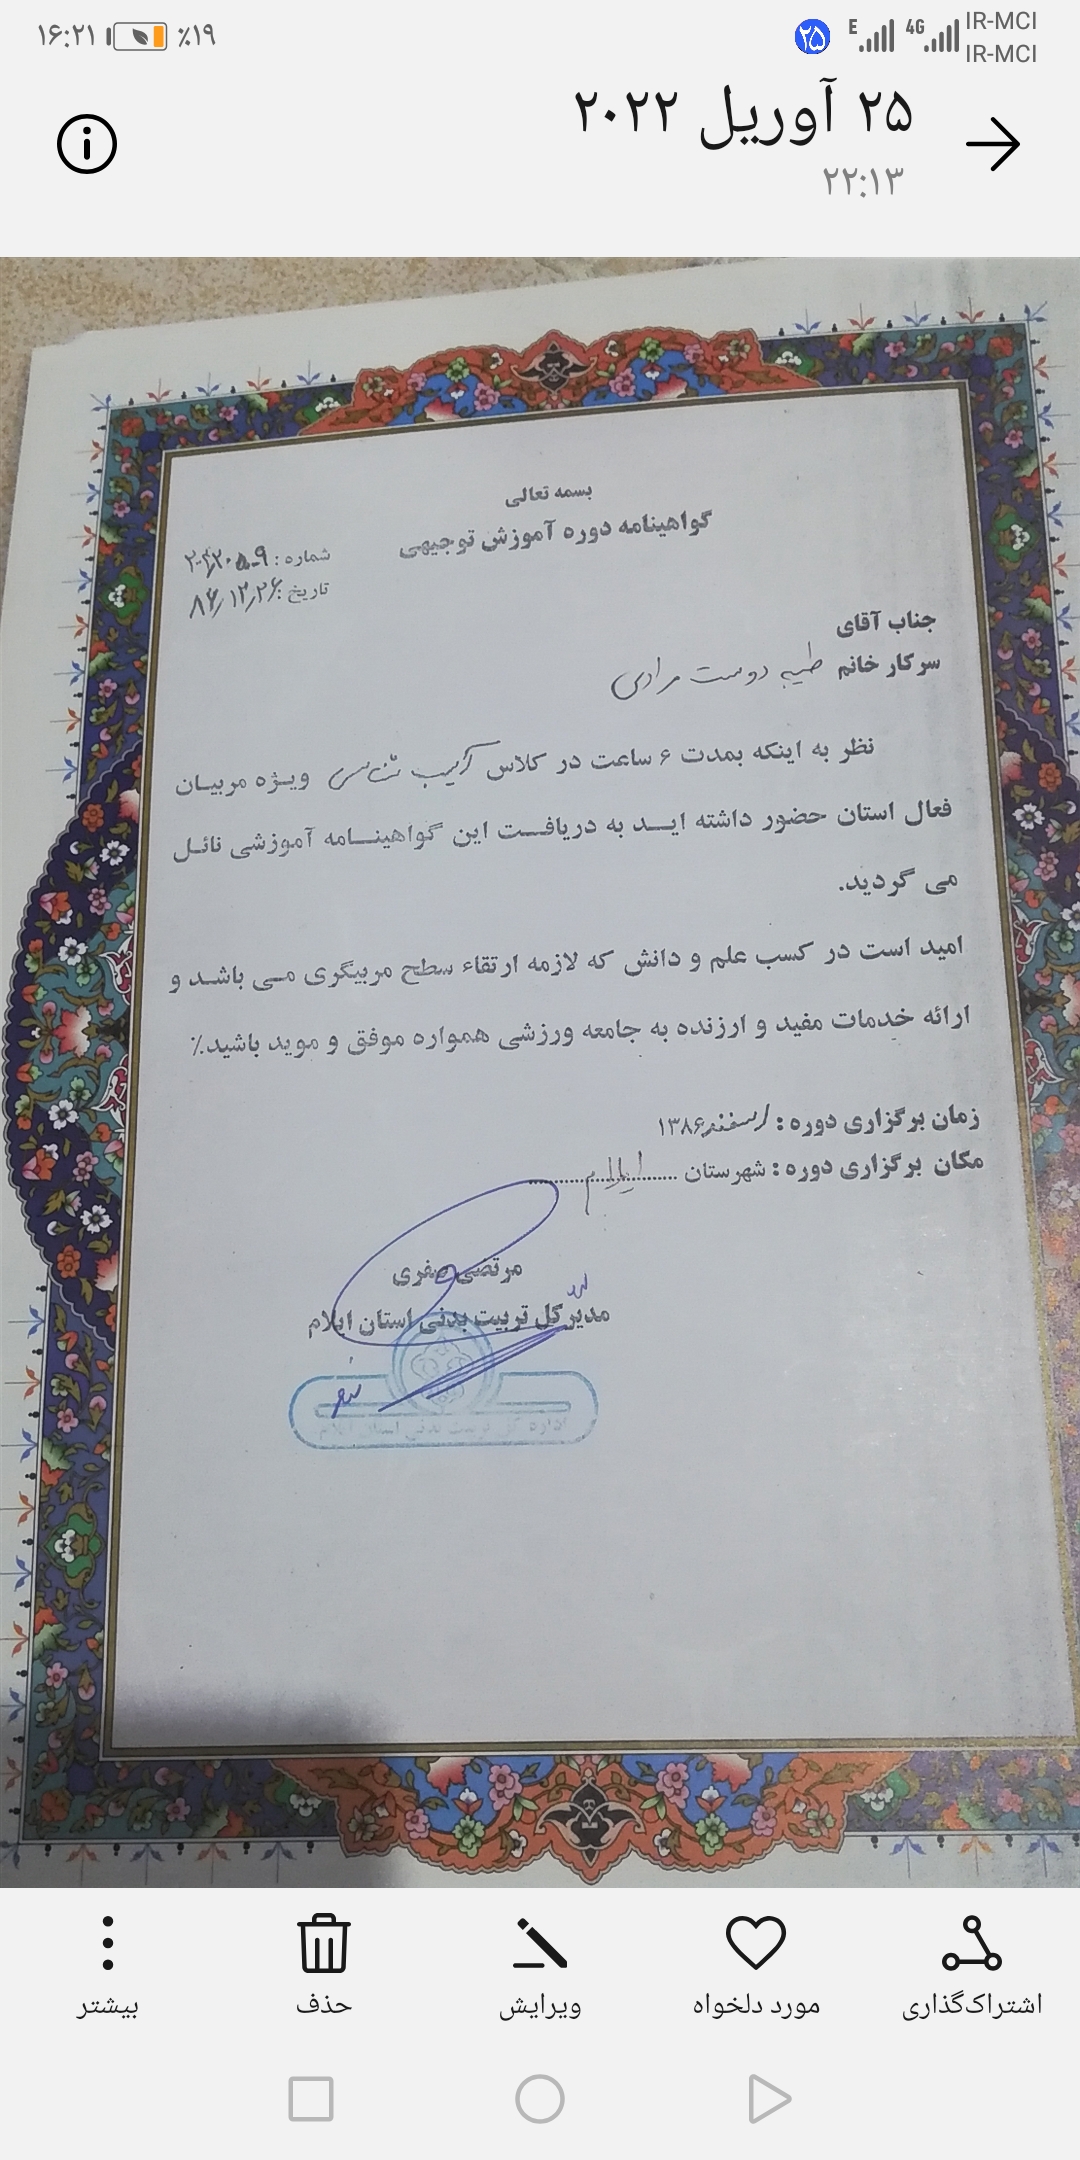 ۱۶:۲۱ ٪۱۹ ۲۵ E 4G IR-MCI
IR-MCI
۲۵ آوریل ۲۰۲۲
۲۲:۱۳
بسمه تعالی
گواهینامه دوره آموزش توجیهی
شماره :
تاریخ : ۸۶/۱۲/۲۶
جناب آقای
سرکار خانم طیبه دوست مرادی
نظر به اینکه بمدت ۶ ساعت در کلاس آسیب شناسی ویژه مربیان
فعال استان حضور داشته اید به دریافت این گواهینامه آموزشی نائل
می گردید.
امید است در کسب علم و دانش که لازمه ارتقاء سطح مربیگری می باشد و
ارائه خدمات مفید و ارزنده به جامعه ورزشی همواره موفق و موید باشید٪
زمان برگزاری دوره : اسفند ۱۳۸۶
مکان برگزاری دوره : شهرستان ایلام
مرتضی صفری
مدیرکل تربیت بدنی استان ایلام
اداره کل تربیت بدنی استان ایلام
اشتراک‌گذاری
مورد دلخواه
ویرایش
حذف
بیشتر